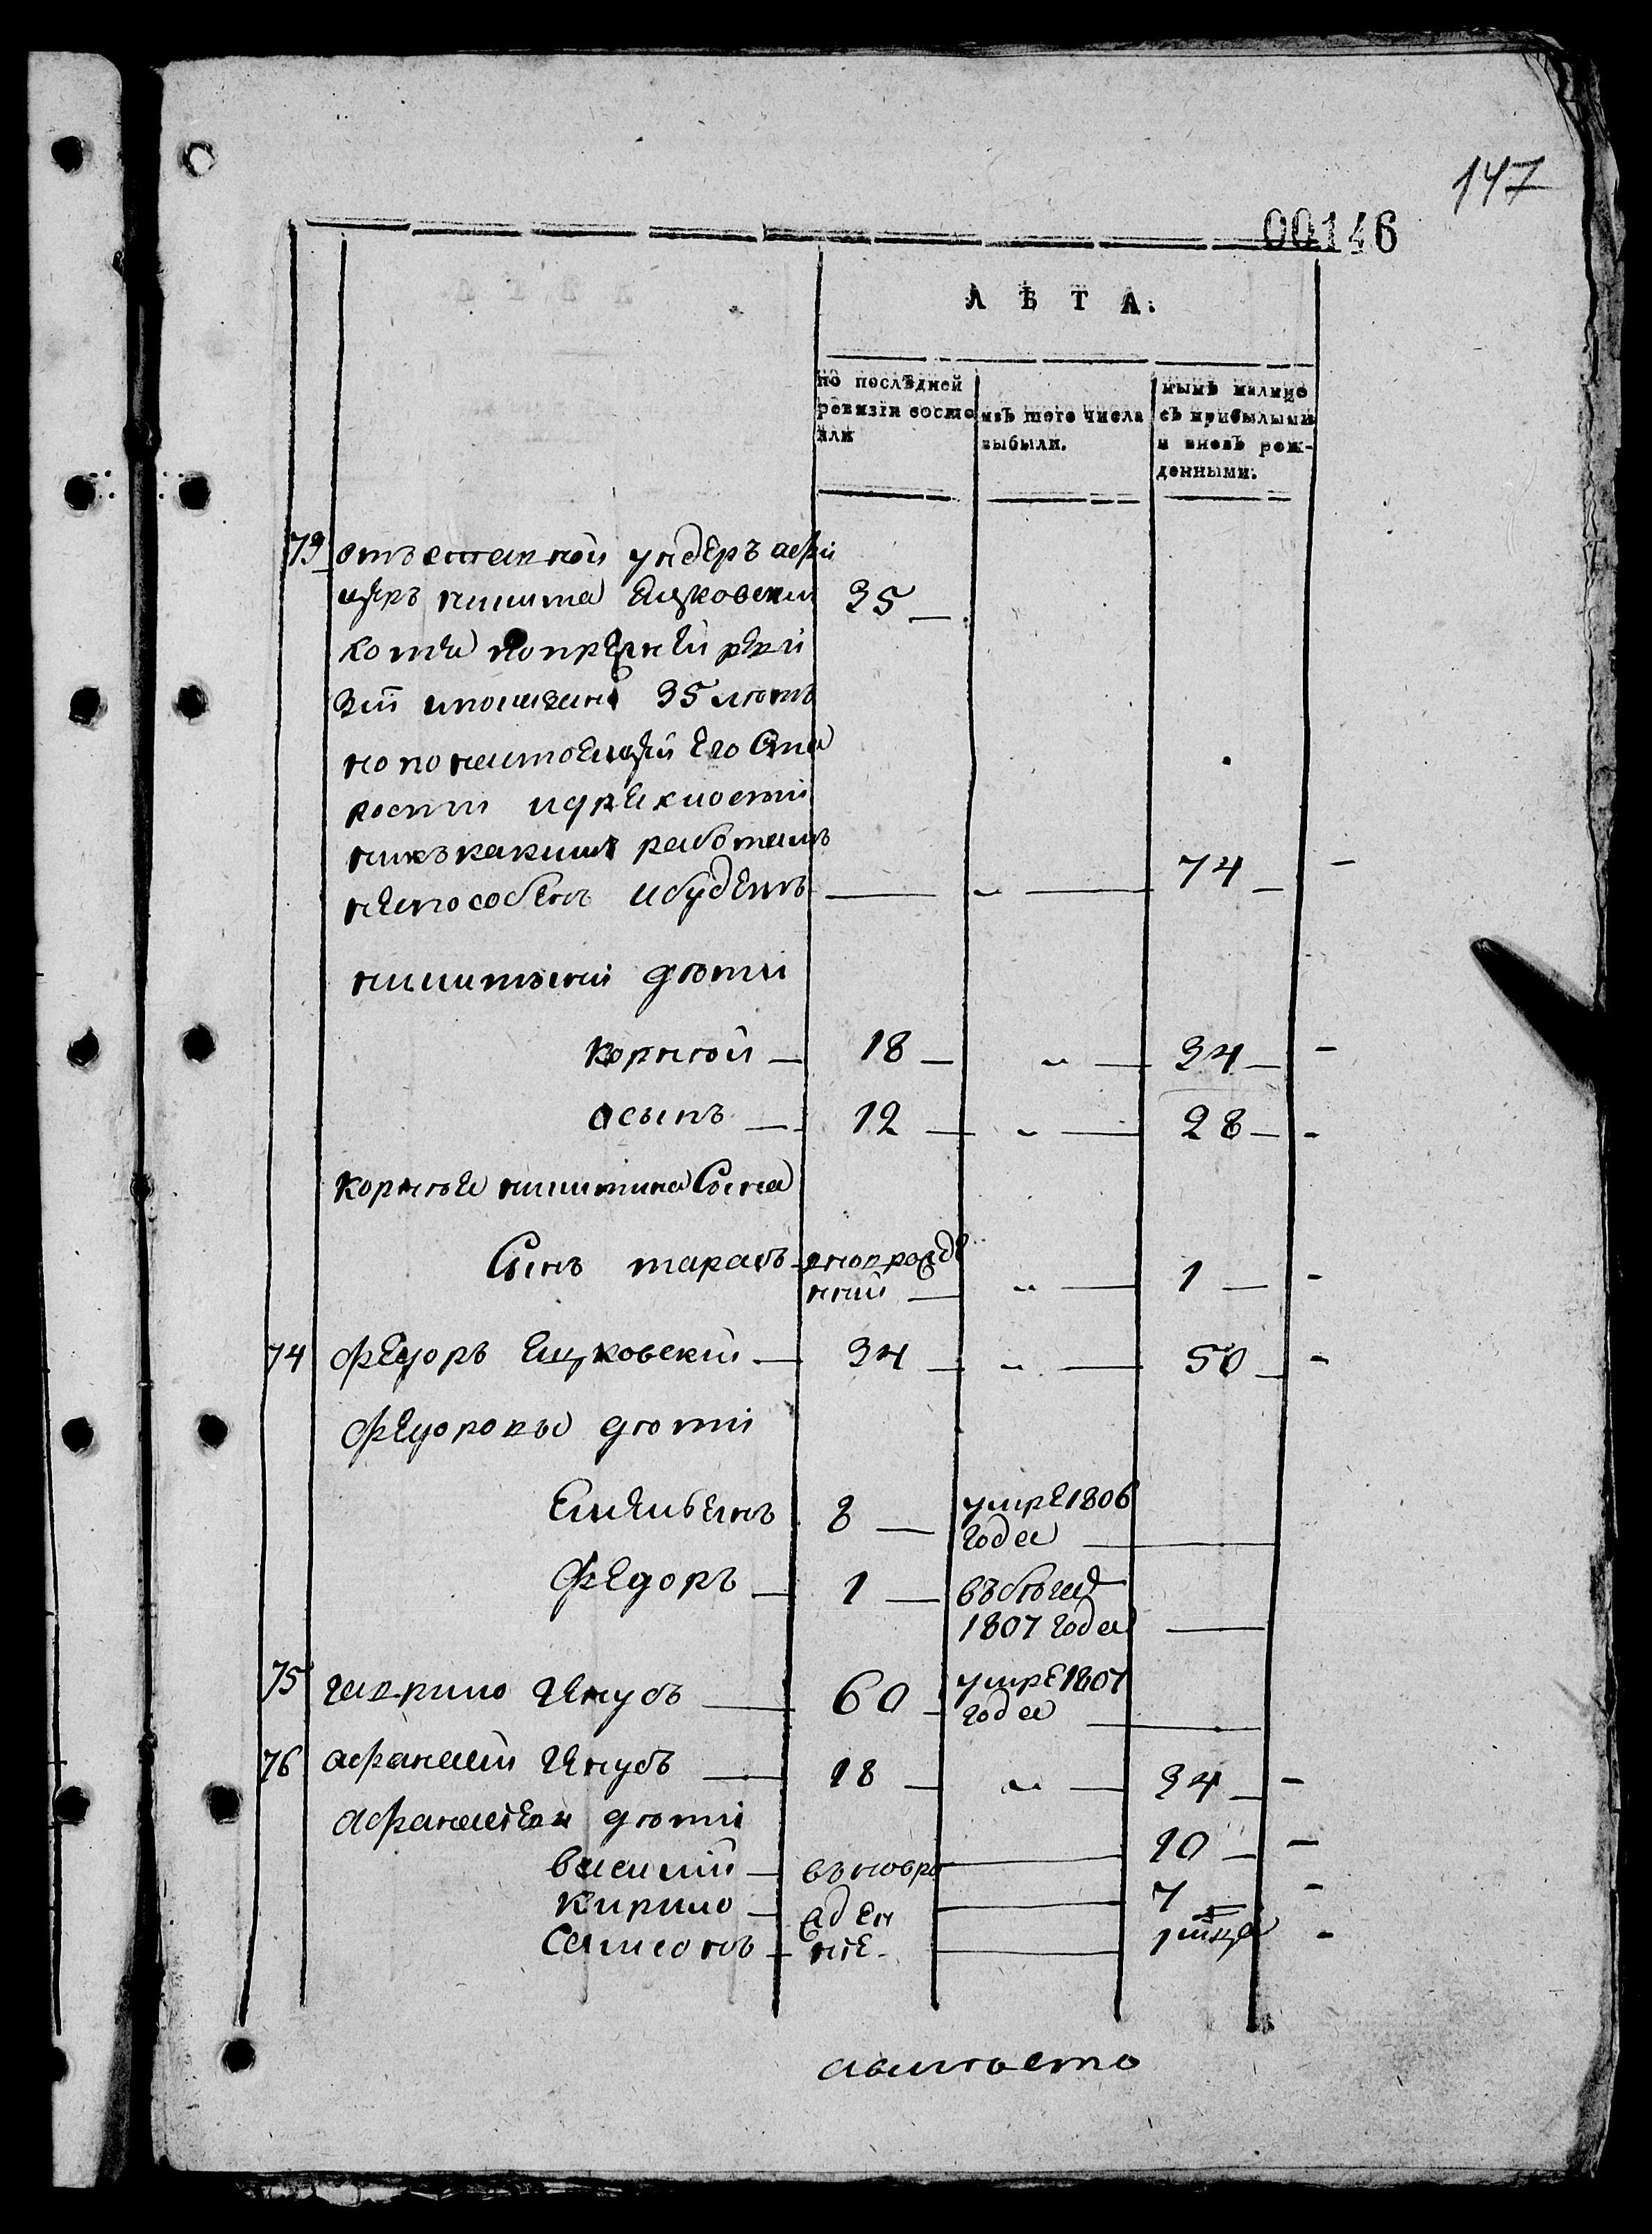 147
00146
ЛѢТА.
по послѣдней
ревизіи состо
яли
изъ того числа
выбыли.
нынѣ налицо
съ прибылыми
и вновь рож-
денными.
73 отъставной ундеръ афи
церъ никита Ецковскии 35
хотя попрежней реви
зіи ипоказанъ 35 лѣтъ
но по настоещей Его Ста
рости идрехлости
никъкакимъ работамъ
неспособенъ ибудетъ — „ — 74
никитыни дѣти
корнѣй — 18 — „ — 34
осыпъ — 12 — „ — 28
корнѣя никитина Сына
Сынъ тарасъ вноврожде
нный — „ — 1
74 Фєдоръ Ецковский — 34 — „ — 50
Фєдоровы дѣти
Емельѣнъ 8 — умре 1806
года
Федоръ — 1 — въбѣгах
1807 года
75 гаврило Генусъ — 60 умре 1807
года
76 афанасій Генусъ — 18 — „ — 34
Афанасіевы дѣти
василій — въновро — 10
Кирило — жден — 7
Самсонъ — ніе — 1